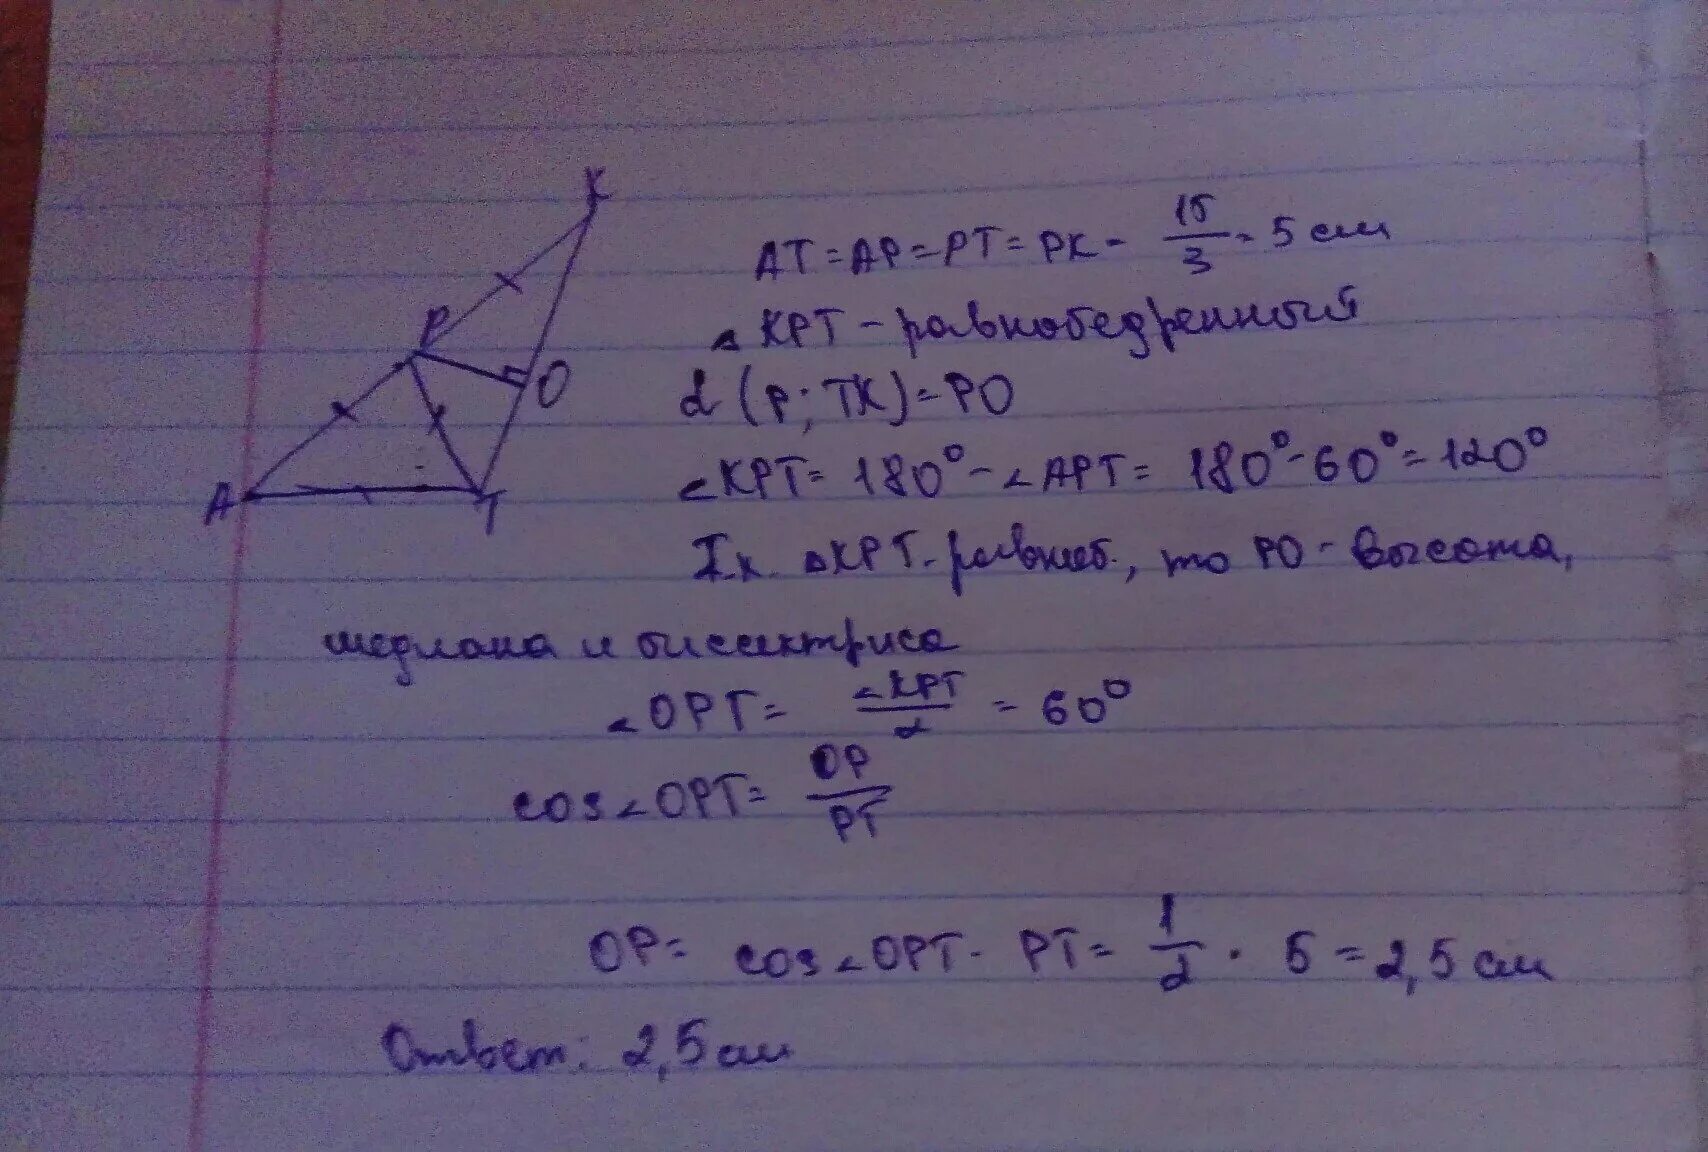 K
P
O
A
T
AT = AP = PT = PK = 15/3 = 5 см
△ KPT - равнобедренный
d (P; TK) = PO
∠KPT = 180° - ∠APT = 180° - 60° = 120°
Т.к. △KPT - равноб., то PO - высота,
медиана и биссектриса
∠OPT = ∠KPT/2 = 60°
cos∠OPT = OP/PT
OP = cos∠OPT · PT = 1/2 · 5 = 2,5 см
Ответ: 2,5 см